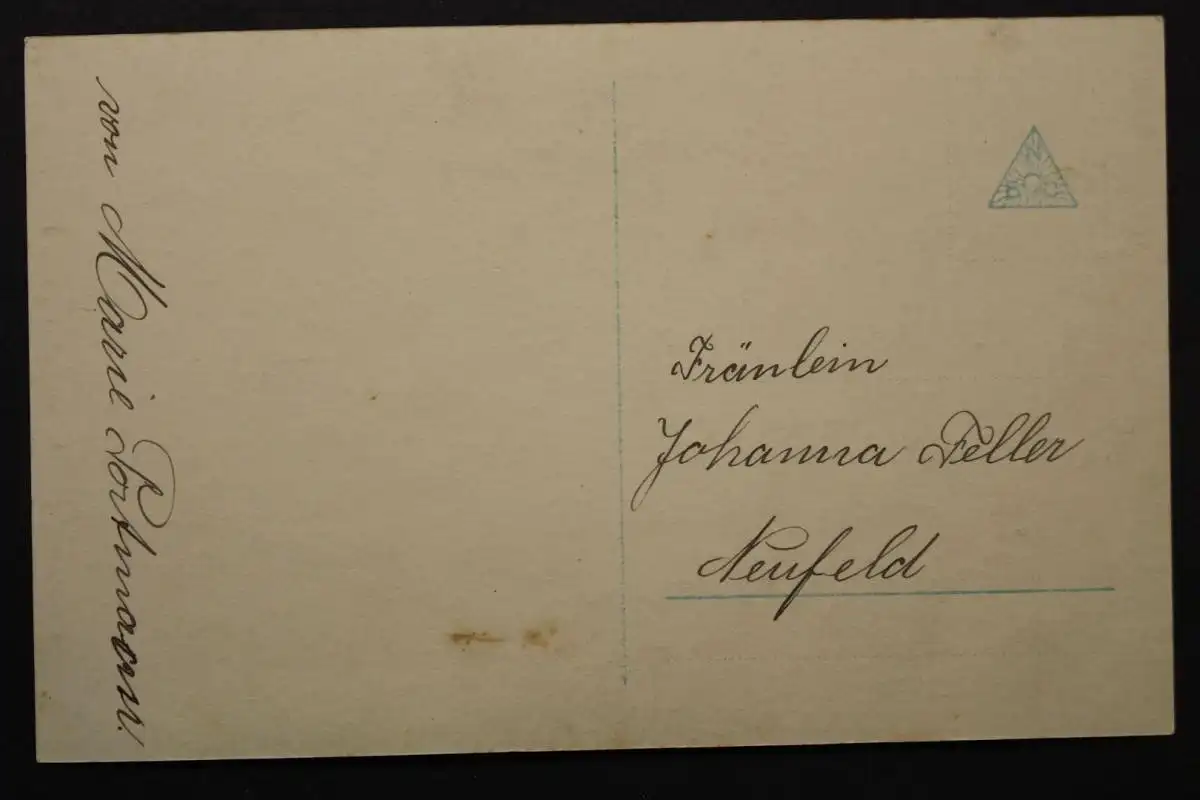 von Marie Portmann!
Fräulein
Johanna Feller
Neufeld